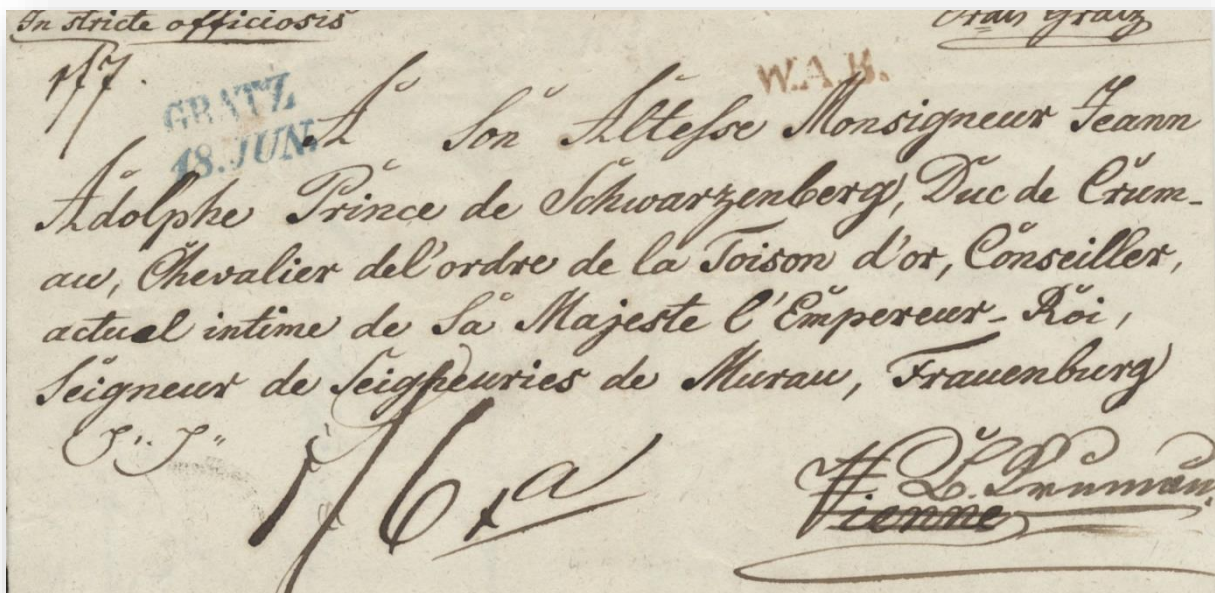 In stricte officiosis
Gratz
GRATZ
18. JUN.
W.A.B.
A Son Altesse Monsigneur Jeann
Adolphe Prince de Schwarzenberg, Duc de Crum-
au, Chevalier del'ordre de la Toison d'or, Conseiller,
actual intime de Sa Majeste l'Empereur-Roi,
Seigneur de Seigneuries de Murau, Frauenburg
Vienne